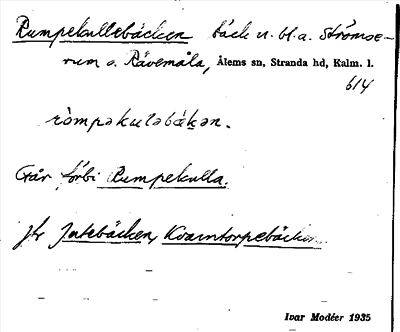 Rumpekullebäcken bäck n. bl.a. Strömse-
rum o. Rävemåla, Ålems sn, Stranda hd, Kalm. l.
614
ròmpəkuləbákən.
Går förbi Rumpekulla.
jfr Jutebäcken, Kvarntorpebäcken
Ivar Modéer 1935